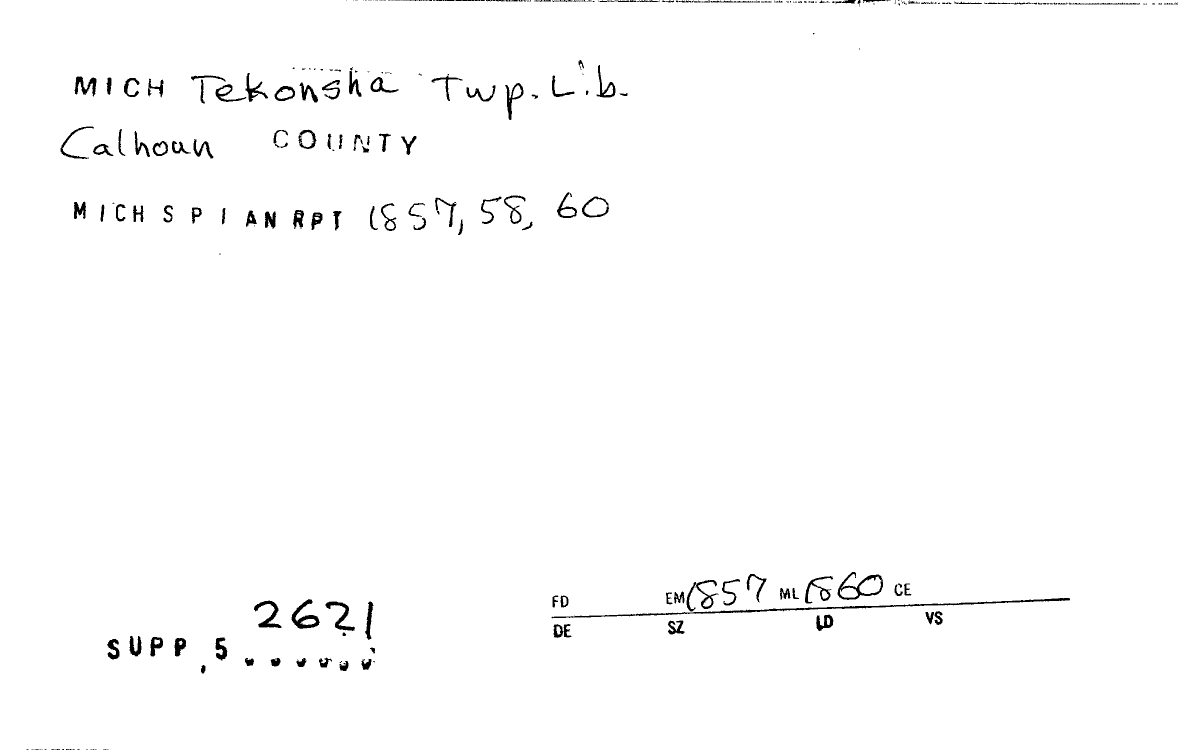 MICH Tekonsha Twp. Lib.
Calhoun COUNTY
MICH SPI AN RPT 1857, 58, 60
2621
SUPP, 5 ......
FD EM 1857 ML 1860 CE
DE SZ LD VS